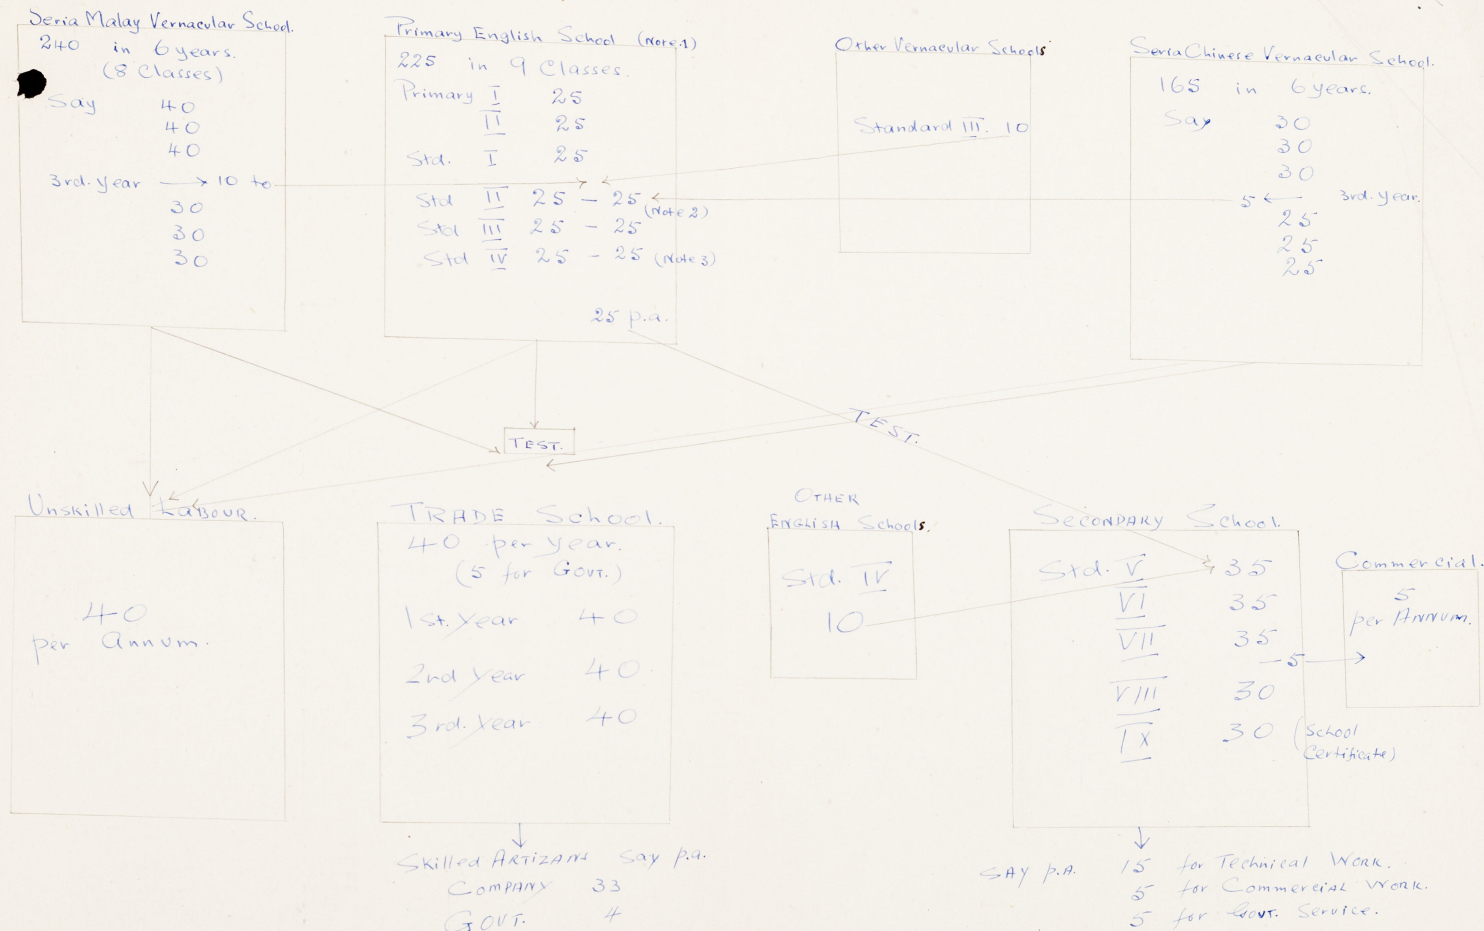 Seria Malay Vernacular School.
240 in 6 years.
(8 Classes)
Say 40
40
40
3rd. year → 10 to
30
30
30
Primary English School (Note.1)
225 in 9 Classes.
Primary I 25
II 25
Std. I 25
Std II 25 - 25 (Note 2)
Std III 25 - 25
Std IV 25 - 25 (Note 3)
25 p.a.
Other Vernacular Schools
Standard III. 10
Seria Chinese Vernacular School.
165 in 6 years.
Say 30
30
30
5 ← 3rd. year.
25
25
25
TEST.
TEST.
Unskilled LABOUR.
40
per Annum.
TRADE School.
40 per year.
(5 for GOVT.)
1st. year 40
2nd year 40
3rd. year 40
Skilled ARTIZANS say p.a.
COMPANY 33
GOVT. 4
OTHER
ENGLISH Schools.
Std. IV
10
SECONDARY School.
Std. V 35
VI 35
VII 35
- 5 →
VIII 30
IX 30 (School
Certificate)
Commercial.
5
per ANNUM.
SAY p.A. 15 for Technical WORK.
5 for Commercial WORK.
5 for GOVT. Service.